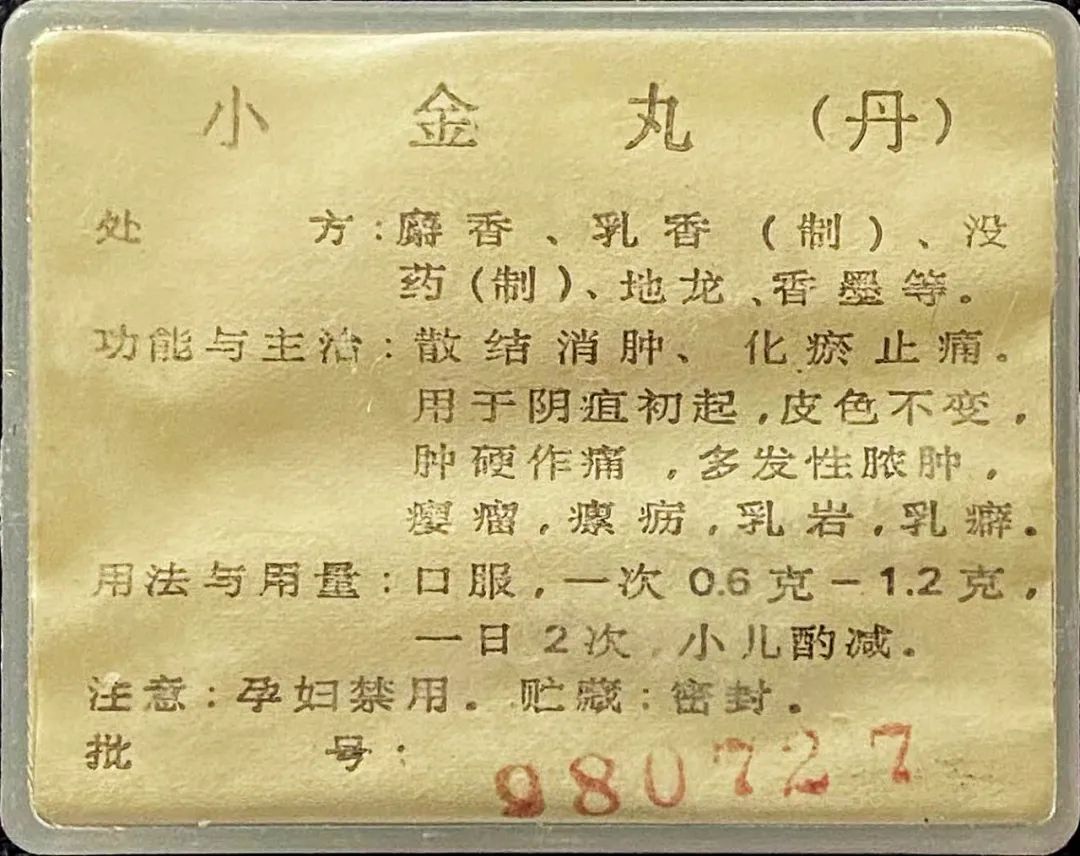 小金丸（丹）
处方：麝香、乳香（制）、没
药（制）、地龙、香墨等。
功能与主治：散结消肿、化瘀止痛。
用于阴疽初起，皮色不变，
肿硬作痛，多发性脓肿，
瘿瘤，瘰疬，乳岩，乳癖。
用法与用量：口服，一次0.6克－1.2克，
一日2次，小儿酌减。
注意：孕妇禁用。贮藏：密封。
批号：980727